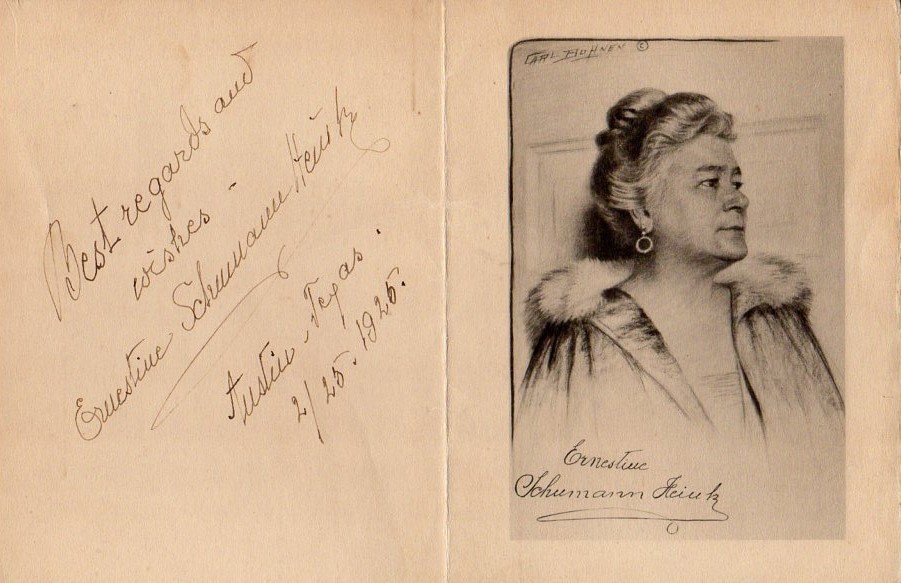 Best regards and
wishes -
Ernestine Schumann Heink
Austin - Texas.
2/25. 1925.
CARL BOHNEN ©
Ernestine
Schumann Heink